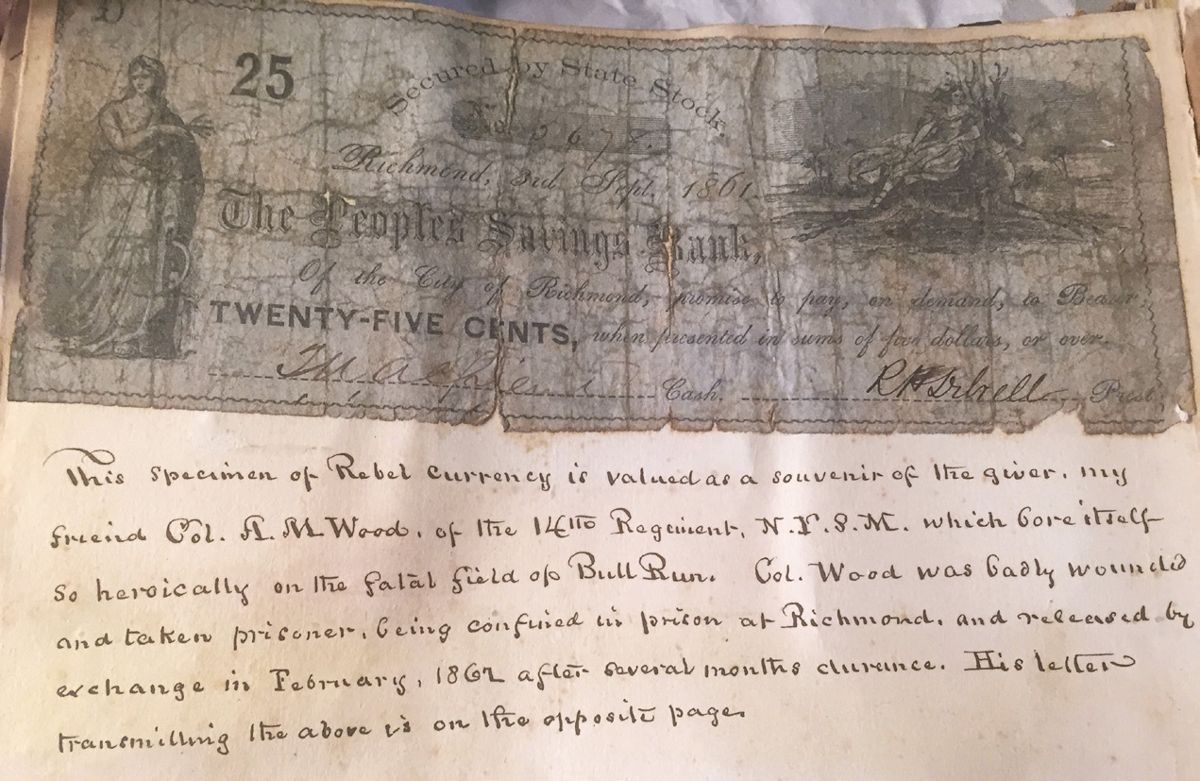 D
25
Secured by State Stock.
No. 5678.
Richmond, 3rd Sept. 1861.
The Peoples Savings Bank,
Of the City of Richmond, promise to pay, on demand, to Bearer,
TWENTY-FIVE CENTS, when presented in sums of five dollars, or over.
Cash. Prest.
This specimen of Rebel currency is valued as a souvenir of the giver, my
friend Col. A. M. Wood, of the 14th Regiment, N.Y.S.M. which bore itself
so heroically on the fatal field of Bull Run. Col. Wood was badly wounded
and taken prisoner, being confined in prison at Richmond, and released by
exchange in February, 1862 after several months durance. His letter
transmitting the above is on the opposite page.